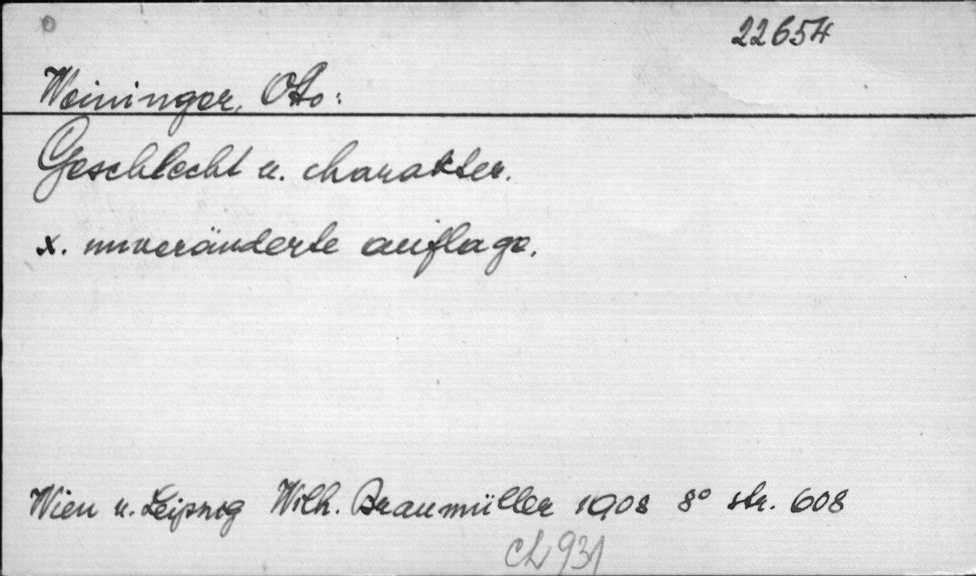 22654
Weininger, Otto:
Geschlecht u. charakter.
x. unveränderte auflage.
Wien u. Leipzig Wilh. Braumüller 1908 8° str. 608
CL 931